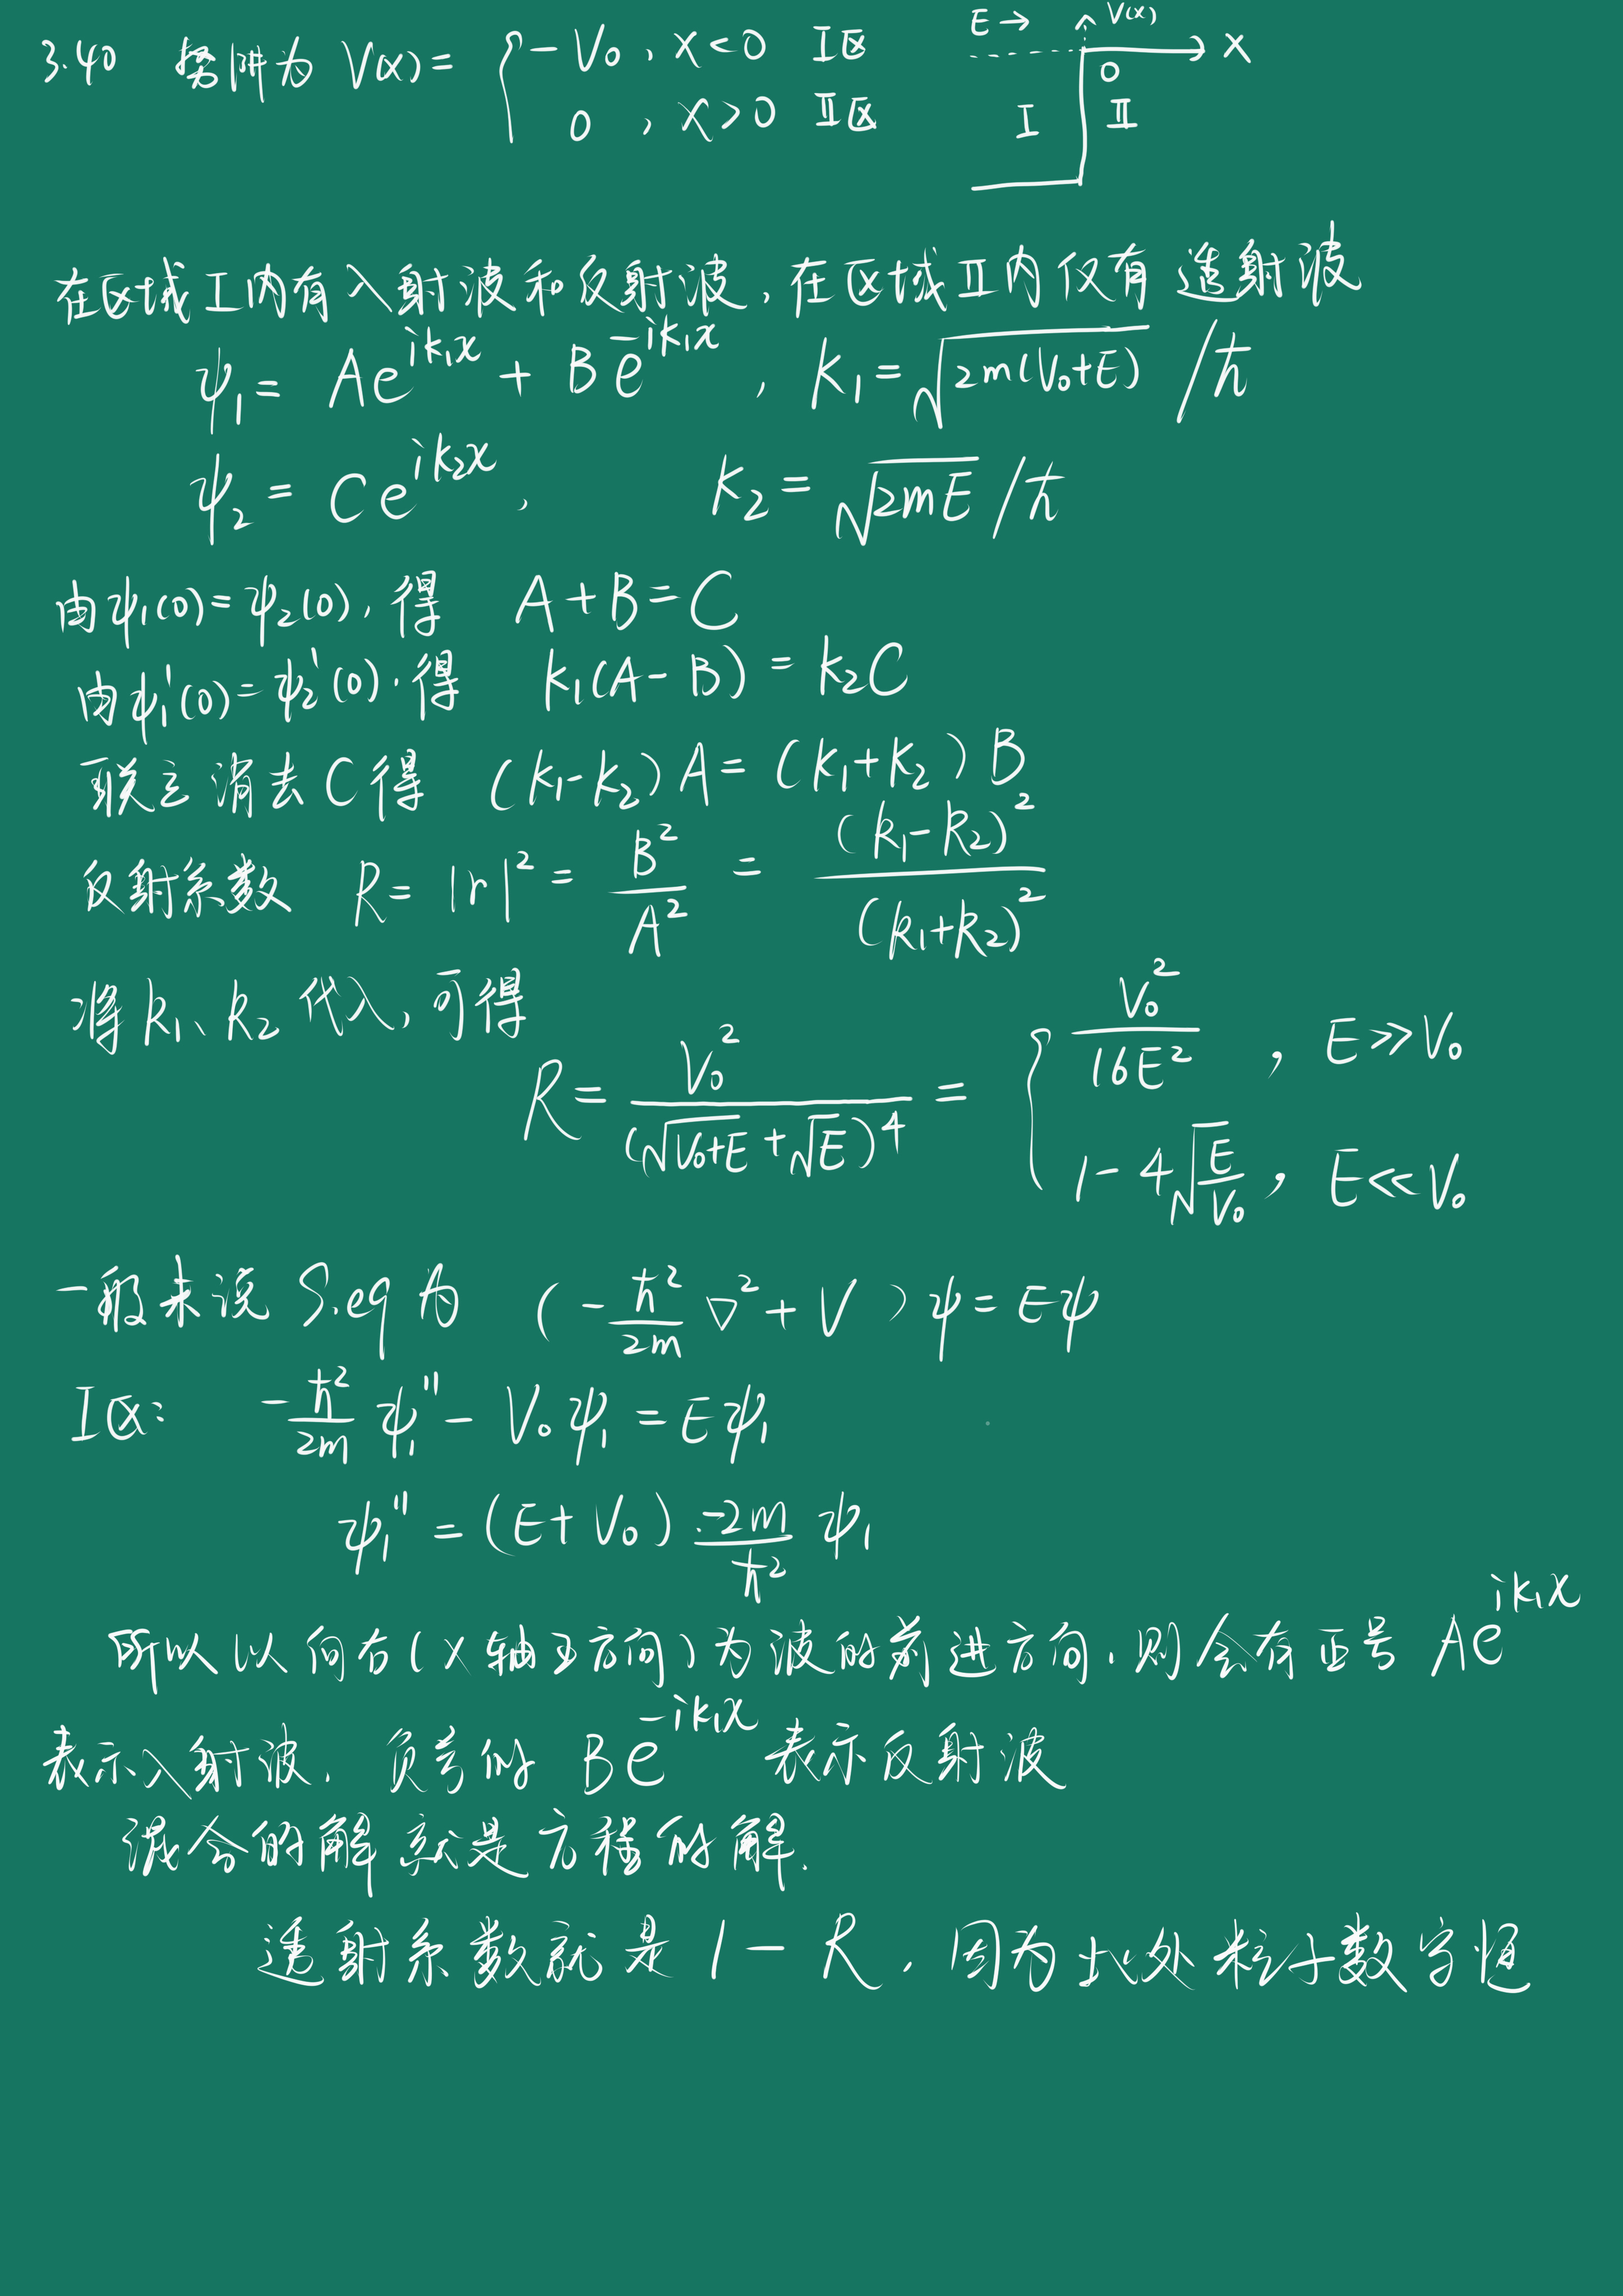 3.40 势阱为 V(x)= { -V₀, x<0 I区
0, x>0 II区
E→ V(x)
0 x
I II
在区域I内有入射波和反射波,在区域II内仅有透射波
ψ₁ = Ae^{ik₁x} + Be^{-ik₁x}, k₁ = √(2m(V₀+E)) /ħ
ψ₂ = Ce^{ik₂x}, k₂ = √(2mE) /ħ
由ψ₁(0)=ψ₂(0), 得 A+B=C
由ψ₁'(0)=ψ₂'(0), 得 k₁(A-B) = k₂C
联立消去C得 (k₁-k₂)A = (k₁+k₂)B
反射系数 R = |r|² = B²/A² = (k₁-k₂)²/(k₁+k₂)²
将k₁、k₂代入,可得
R = V₀²/(√(V₀+E) + √E)⁴ = { V₀²/16E², E≫V₀
1-4√(E/V₀), E≪V₀
一般来说 S.eq 为 (-ħ²/2m ∇² + V)ψ = Eψ
I区: -ħ²/2m ψ₁'' - V₀ψ₁ = Eψ₁
ψ₁'' = (E+V₀) -2m/ħ² ψ₁
所以以向右(x轴正方向)为波的前进方向,则会有正号 Ae^{ik₁x}
表示入射波, 负号的 Be^{-ik₁x} 表示反射波
混合的解就是方程的解.
透射系数就是 1-R, 因为此处粒子数守恒